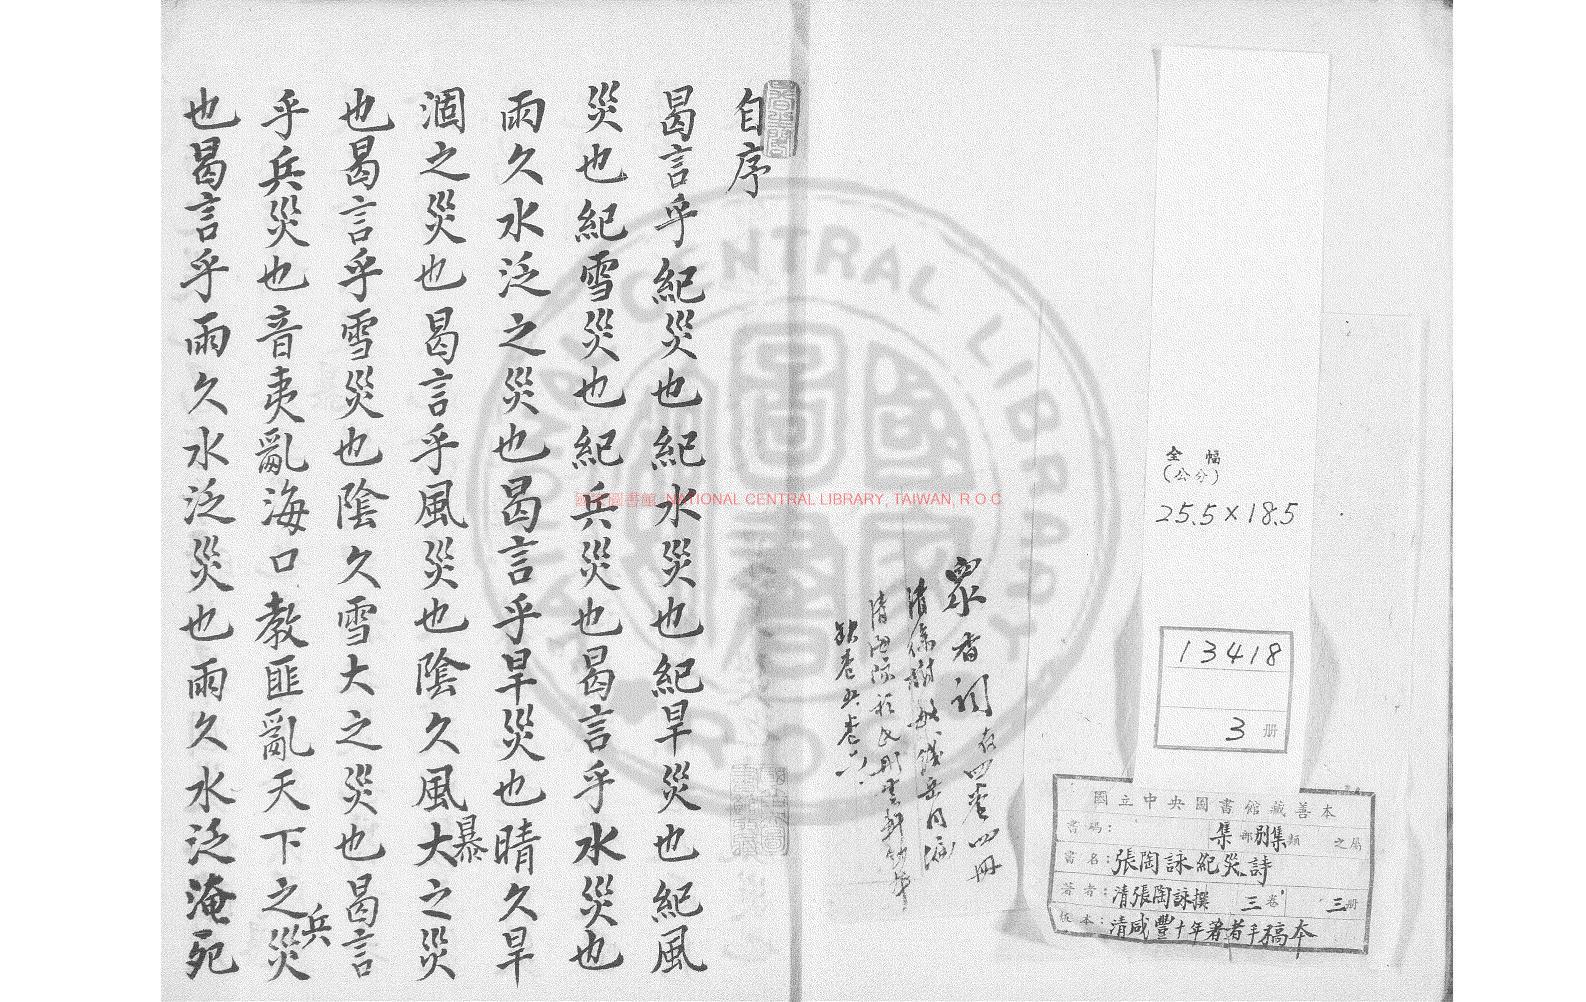 全幅
(公分)
25.5×18.5
13418
3 册
國立中央圖書館藏善本
書碼： 集部別集類 之屬
書名：張陶詠紀災詩
著者：清張陶詠撰 三卷 三册
版本：清咸豐十年著者手稿本
眾香詞 存四卷四冊
清徐樹敏錢岳同編
缺卷五卷六
自序
曷言乎紀災也紀水災也紀旱災也紀風
災也紀雪災也紀兵災也曷言乎水災也
雨久水泛之災也曷言乎旱災也晴久旱
涸之災也曷言乎風災也陰久風大暴之災
也曷言乎雪災也陰久雪大之災也曷言
乎兵災也音夷亂海口教匪亂天下之兵災
也曷言乎雨久水泛災也雨久水泛淹死
國家圖書館 NATIONAL CENTRAL LIBRARY, TAIWAN, R O C
NATIONAL CENTRAL LIBRARY
R O C
國家圖書館